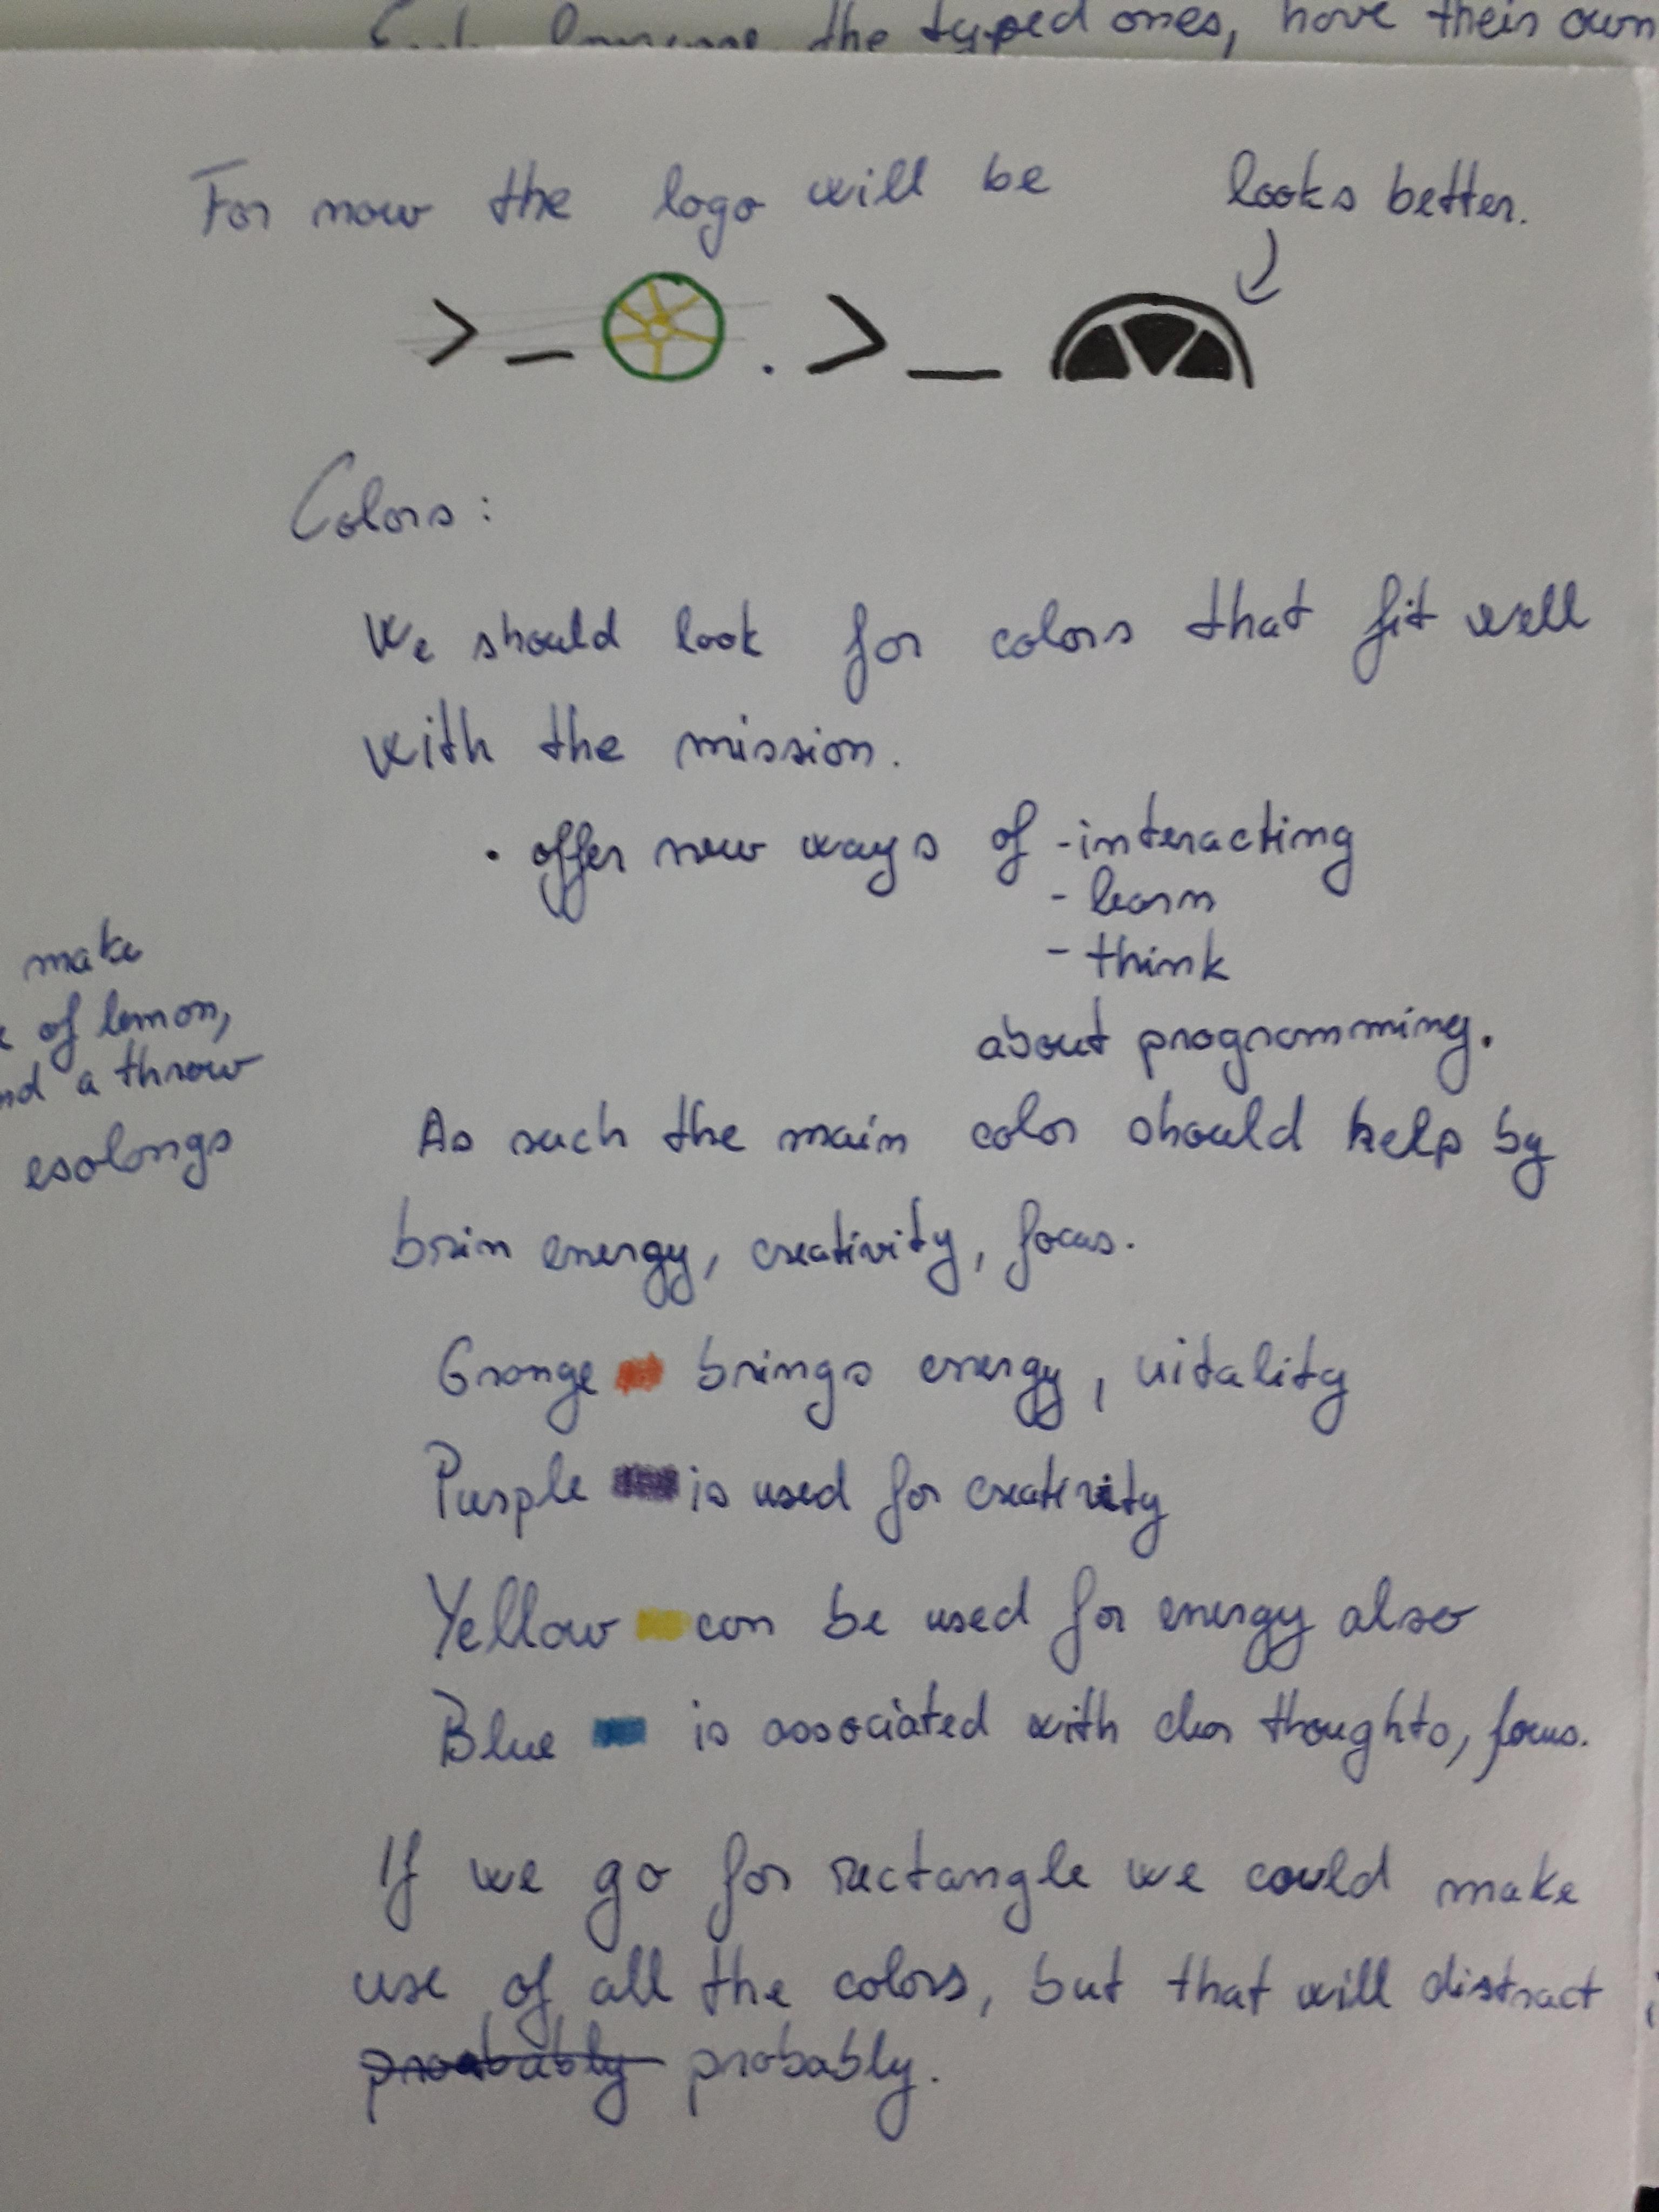 the typed ones, have their own
For now the logo will be
looks better.
>_ . >_
Colors:
We should look for colors that fit well
with the mission.
• offer new ways of - interacting
- learn
- think
about programming.
make
of lemon,
nd a throw
esolangs
As such the main color should help by
brain energy, creativity, focus.
Orange brings energy, vitality
Purple is used for creativity
Yellow can be used for energy also
Blue is associated with clear thoughts, focus.
If we go for rectangle we could make
use of all the colors, but that will distract
probably probably.